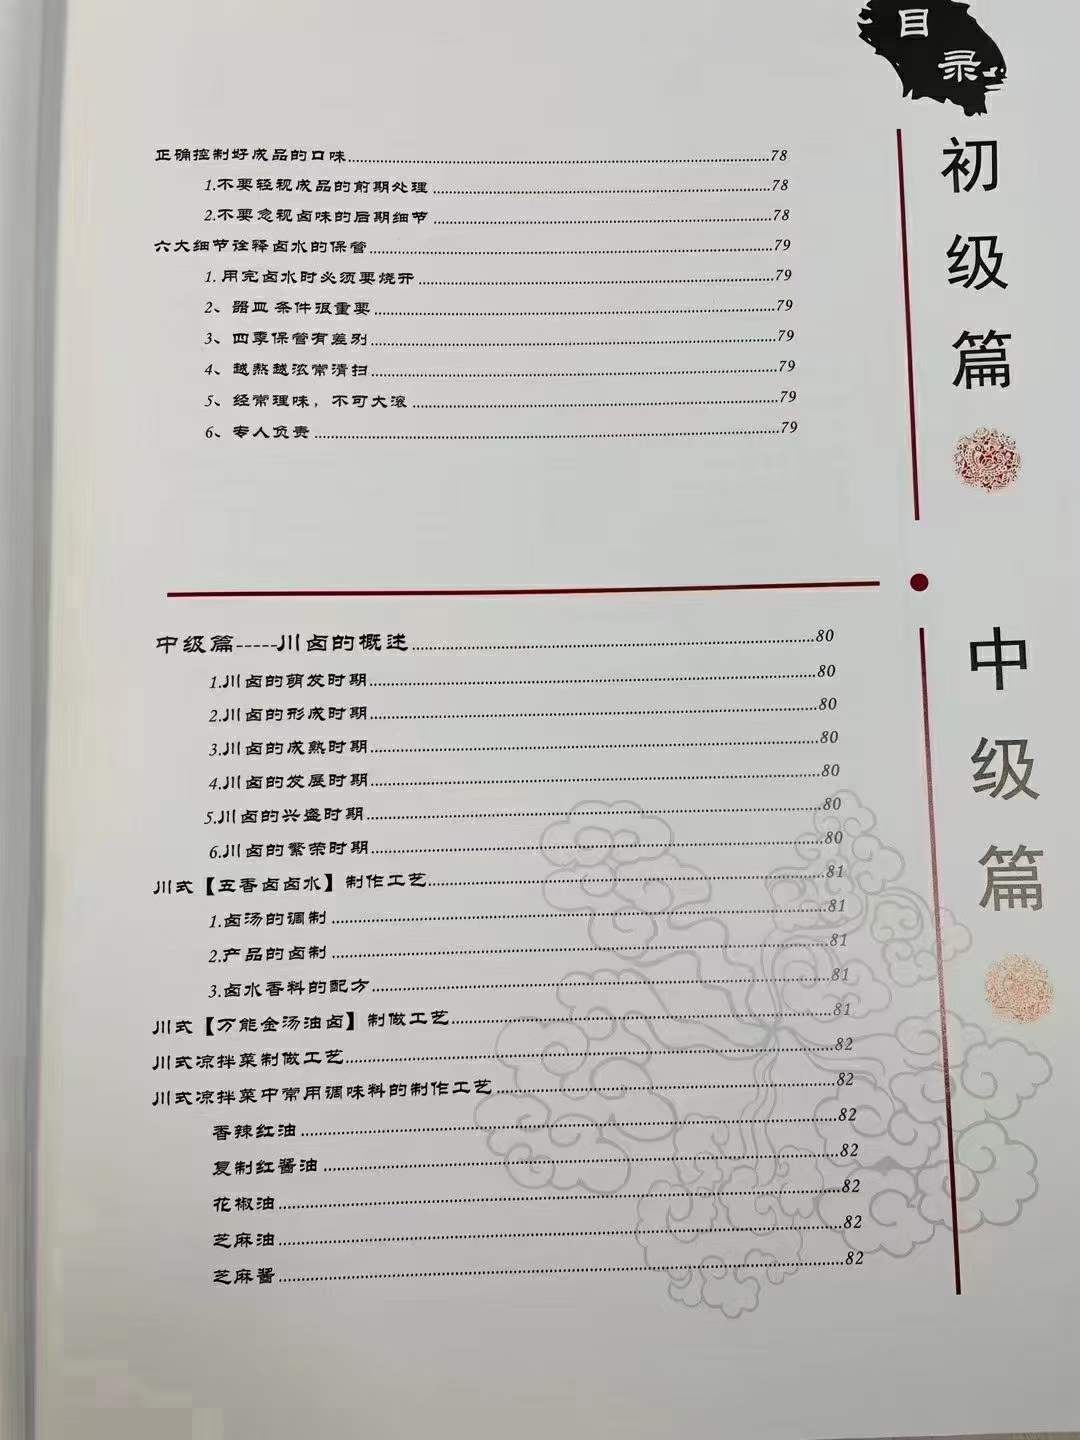 目录
初级篇
正确控制好成品的口味........78
1.不要轻视成品的前期处理........78
2.不要忽视卤味的后期细节........78
六大细节诠释卤水的保管........79
1. 用完卤水时必须要烧开........79
2、器皿 条件很重要........79
3、四季保管有差别........79
4、越熬越浓常清扫........79
5、经常理味，不可大滚........79
6、专人负责........79
中级篇
中级篇-----川卤的概述........80
1.川卤的萌发时期........80
2.川卤的形成时期........80
3.川卤的成熟时期........80
4.川卤的发展时期........80
5.川卤的兴盛时期........80
6.川卤的繁荣时期........80
川式【五香卤卤水】制作工艺........81
1.卤汤的调制........81
2.产品的卤制........81
3.卤水香料的配方........81
川式【万能金汤油卤】制做工艺........81
川式凉拌菜制做工艺........82
川式凉拌菜中常用调味料的制作工艺........82
香辣红油........82
复制红酱油........82
花椒油........82
芝麻油........82
芝麻酱........82